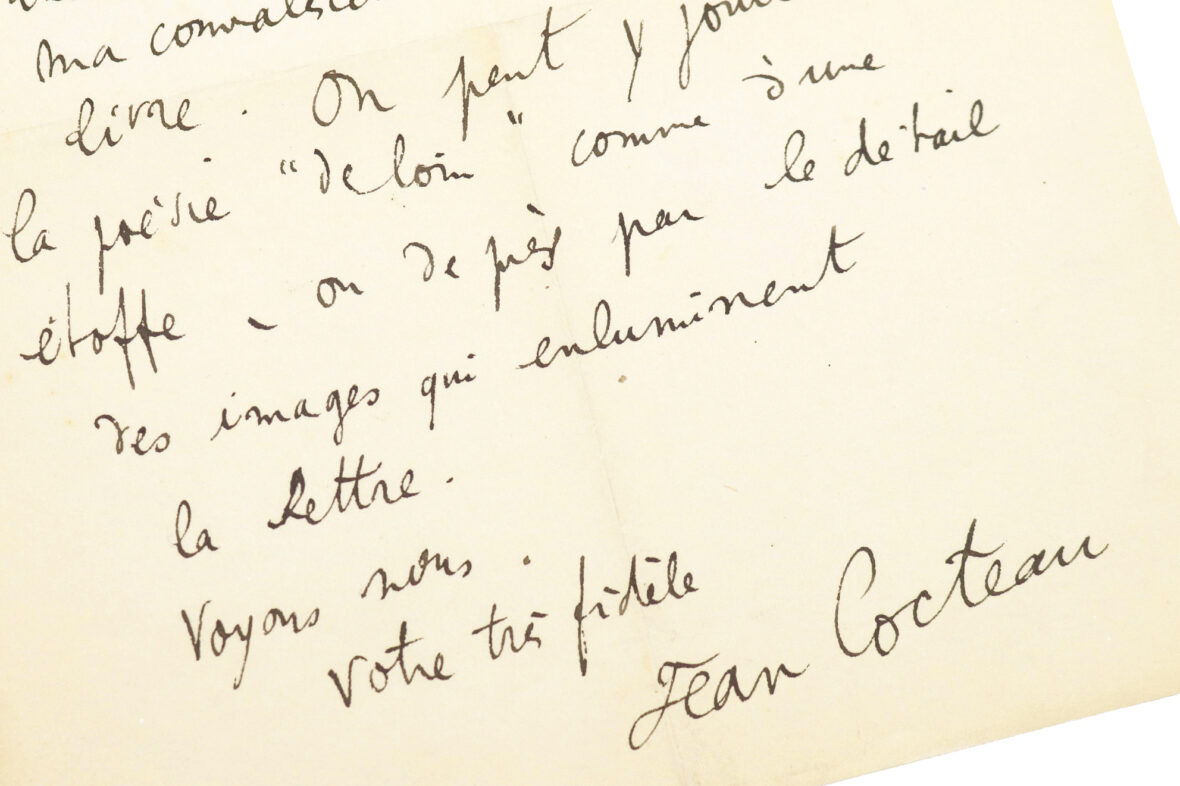 ma
livre. On peut y
la poésie "de loin" comme à une
étoffe - ou de près par le détail
des images qui enluminent
la lettre.
Voyons nous.
Votre très fidèle
Jean Cocteau